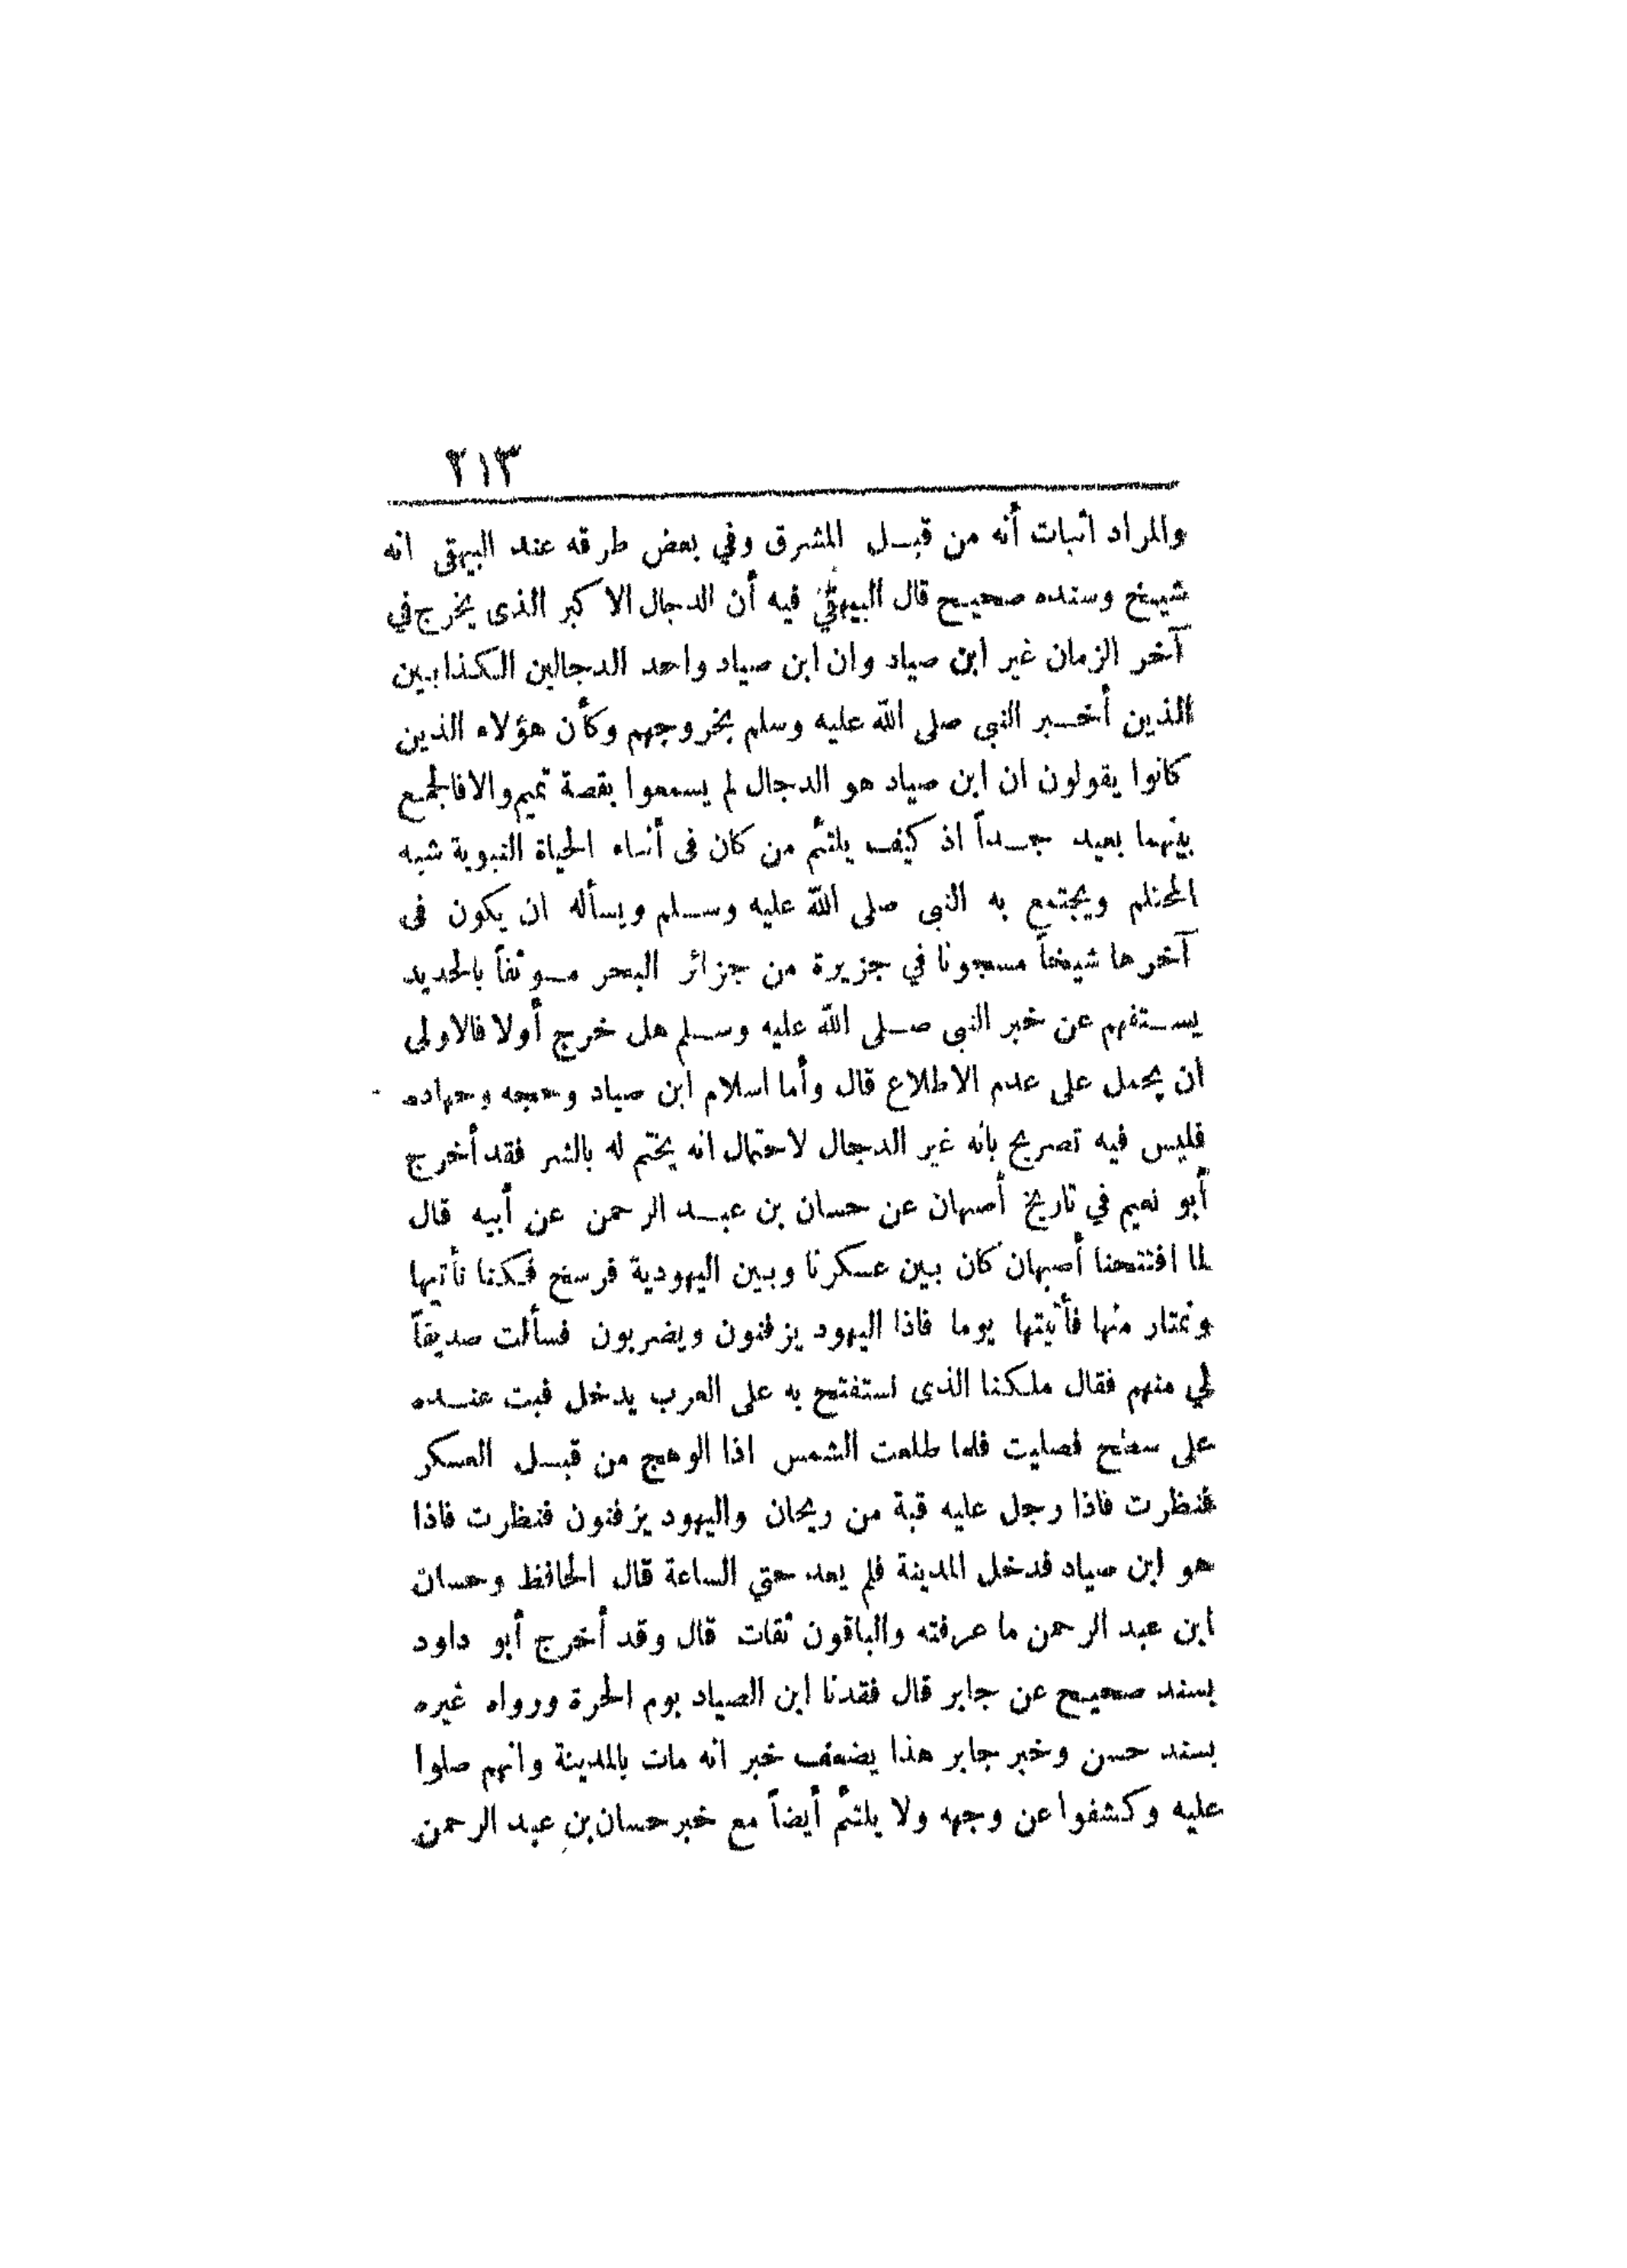 ٢١٣
والمراد اثبات أنه من قبل المشرق وفي بعض طرقه عند البيهقى انه
شيخ وسنده صحيح قال البيهقي فيه أن الدجال الاكبر الذى يخرج في
آخر الزمان غير ابن صياد وان ابن صياد واحد الدجالين الكذابين
الذين أخبر النبى صلى الله عليه وسلم بخروجهم وكأن هؤلاء الذين
كانوا يقولون ان ابن صياد هو الدجال لم يسمعوا بقصة تميم والا فالجمع
بينهما بعيد جداً اذ كيف يلتئم من كان فى أثناء الحياة النبوية شبه
المحتلم ويجتمع به النبى صلى الله عليه وسلم ويسأله ان يكون فى
آخرها شيخاً مسجونا في جزيرة من جزائر البحر موثقاً بالحديد
يستفهم عن خبر النبى صلى الله عليه وسلم هل خرج أولا فالاولى
ان يحمل على عدم الاطلاع قال وأما اسلام ابن صياد وحجه وجهاده
فليس فيه تصريح بانه غير الدجال لاحتمال انه يختم له بالشر فقد أخرج
أبو نعيم في تاريخ أصبهان عن حسان بن عبد الرحمن عن أبيه قال
لما افتتحنا أصبهان كان بين عسكرنا وبين اليهودية فرسخ فكنا نأتيها
ونمتار منها فأتيتها يوما فاذا اليهود يزفنون ويضربون فسألت صديقاً
لي منهم فقال ملكنا الذى نستفتح به على العرب يدخل فبت عنده
على سطح فصليت فلما طلعت الشمس اذا الوهج من قبل العسكر
فنظرت فاذا رجل عليه قبة من ريحان واليهود يزفنون فنظرت فاذا
هو ابن صياد فدخل المدينة فلم يعد حتي الساعة قال الحافظ وحسان
ابن عبد الرحمن ما عرفته والباقون ثقات قال وقد أخرج أبو داود
بسند صحيح عن جابر قال فقدنا ابن الصياد يوم الحرة ورواه غيره
بسند حسن وخبر جابر هذا يضعف خبر انه مات بالمدينة وانهم صلوا
عليه وكشفوا عن وجهه ولا يلتئم أيضاً مع خبر حسان بن عبد الرحمن